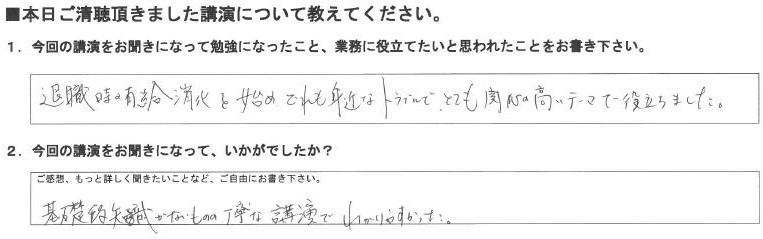 ■本日ご清聴頂きました講演について教えてください。
1．今回の講演をお聞きになって勉強になったこと、業務に役立てたいと思われたことをお書き下さい。
退職時の有給消化を始めどれも身近なトラブルで、とても関心の高いテーマで役立ちました。
2．今回の講演をお聞きになって、いかがでしたか？
ご感想、もっと詳しく聞きたいことなど、ご自由にお書き下さい。
基礎的知識がないものの丁寧な講演でわかりやすかった。